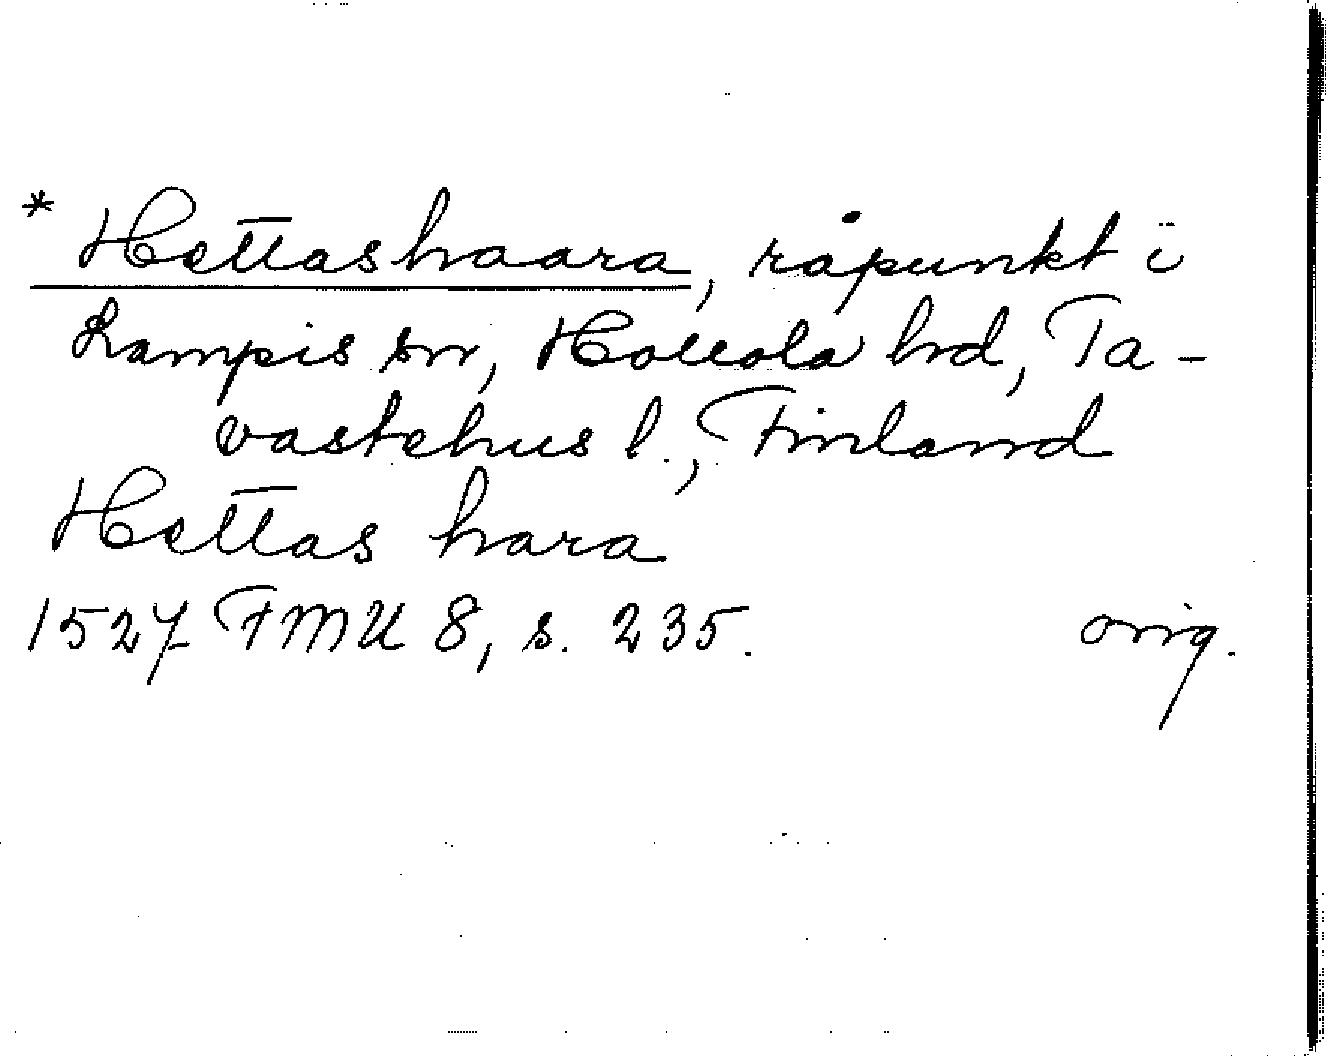 * Hettashaara, råpunkt i
Lampis sn, Hollola hd, Ta-
vastehus l., Finland
Hettas hara
1527 FMU 8, s. 235. orig.